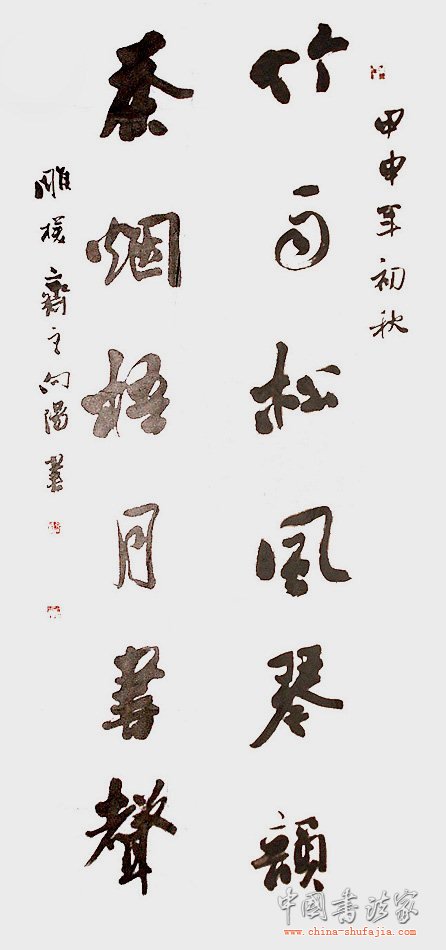 甲申年初秋
竹雨松風琴韻
茶烟梧月書聲
雕樸齋主向陽書
中國書法家
www.china-shufajia.com